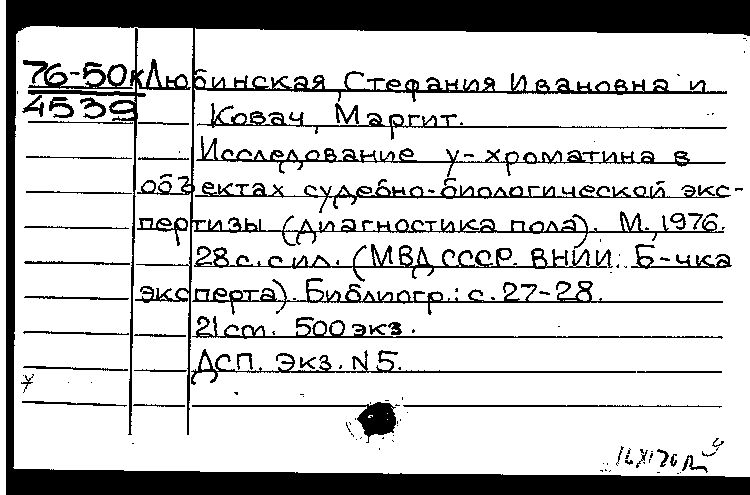 76-50к Любинская, Стефания Ивановна и
4539 Ковач, Маргит.
Исследование y-хроматина в
объектах судебно-биологической экс-
пертизы (диагностика пола). М., 1976.
28 с. с ил. (МВД СССР. ВНИИ. Б-чка
эксперта). Библиогр.: с. 27-28.
21 см. 500 экз.
ДСП. Экз. N 5.